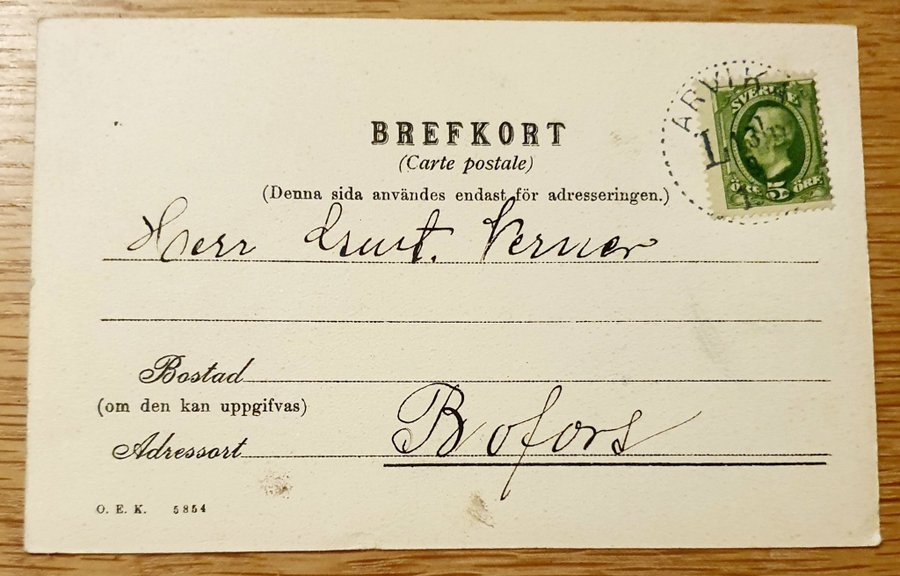 BREFKORT
(Carte postale)
(Denna sida användes endast för adresseringen.)
ARVIKA
SVERIGE
5
ÖRE ÖRE
Herr Verner
Bostad
(om den kan uppgifvas)
Bofors
Adressort
O. E. K. 5854